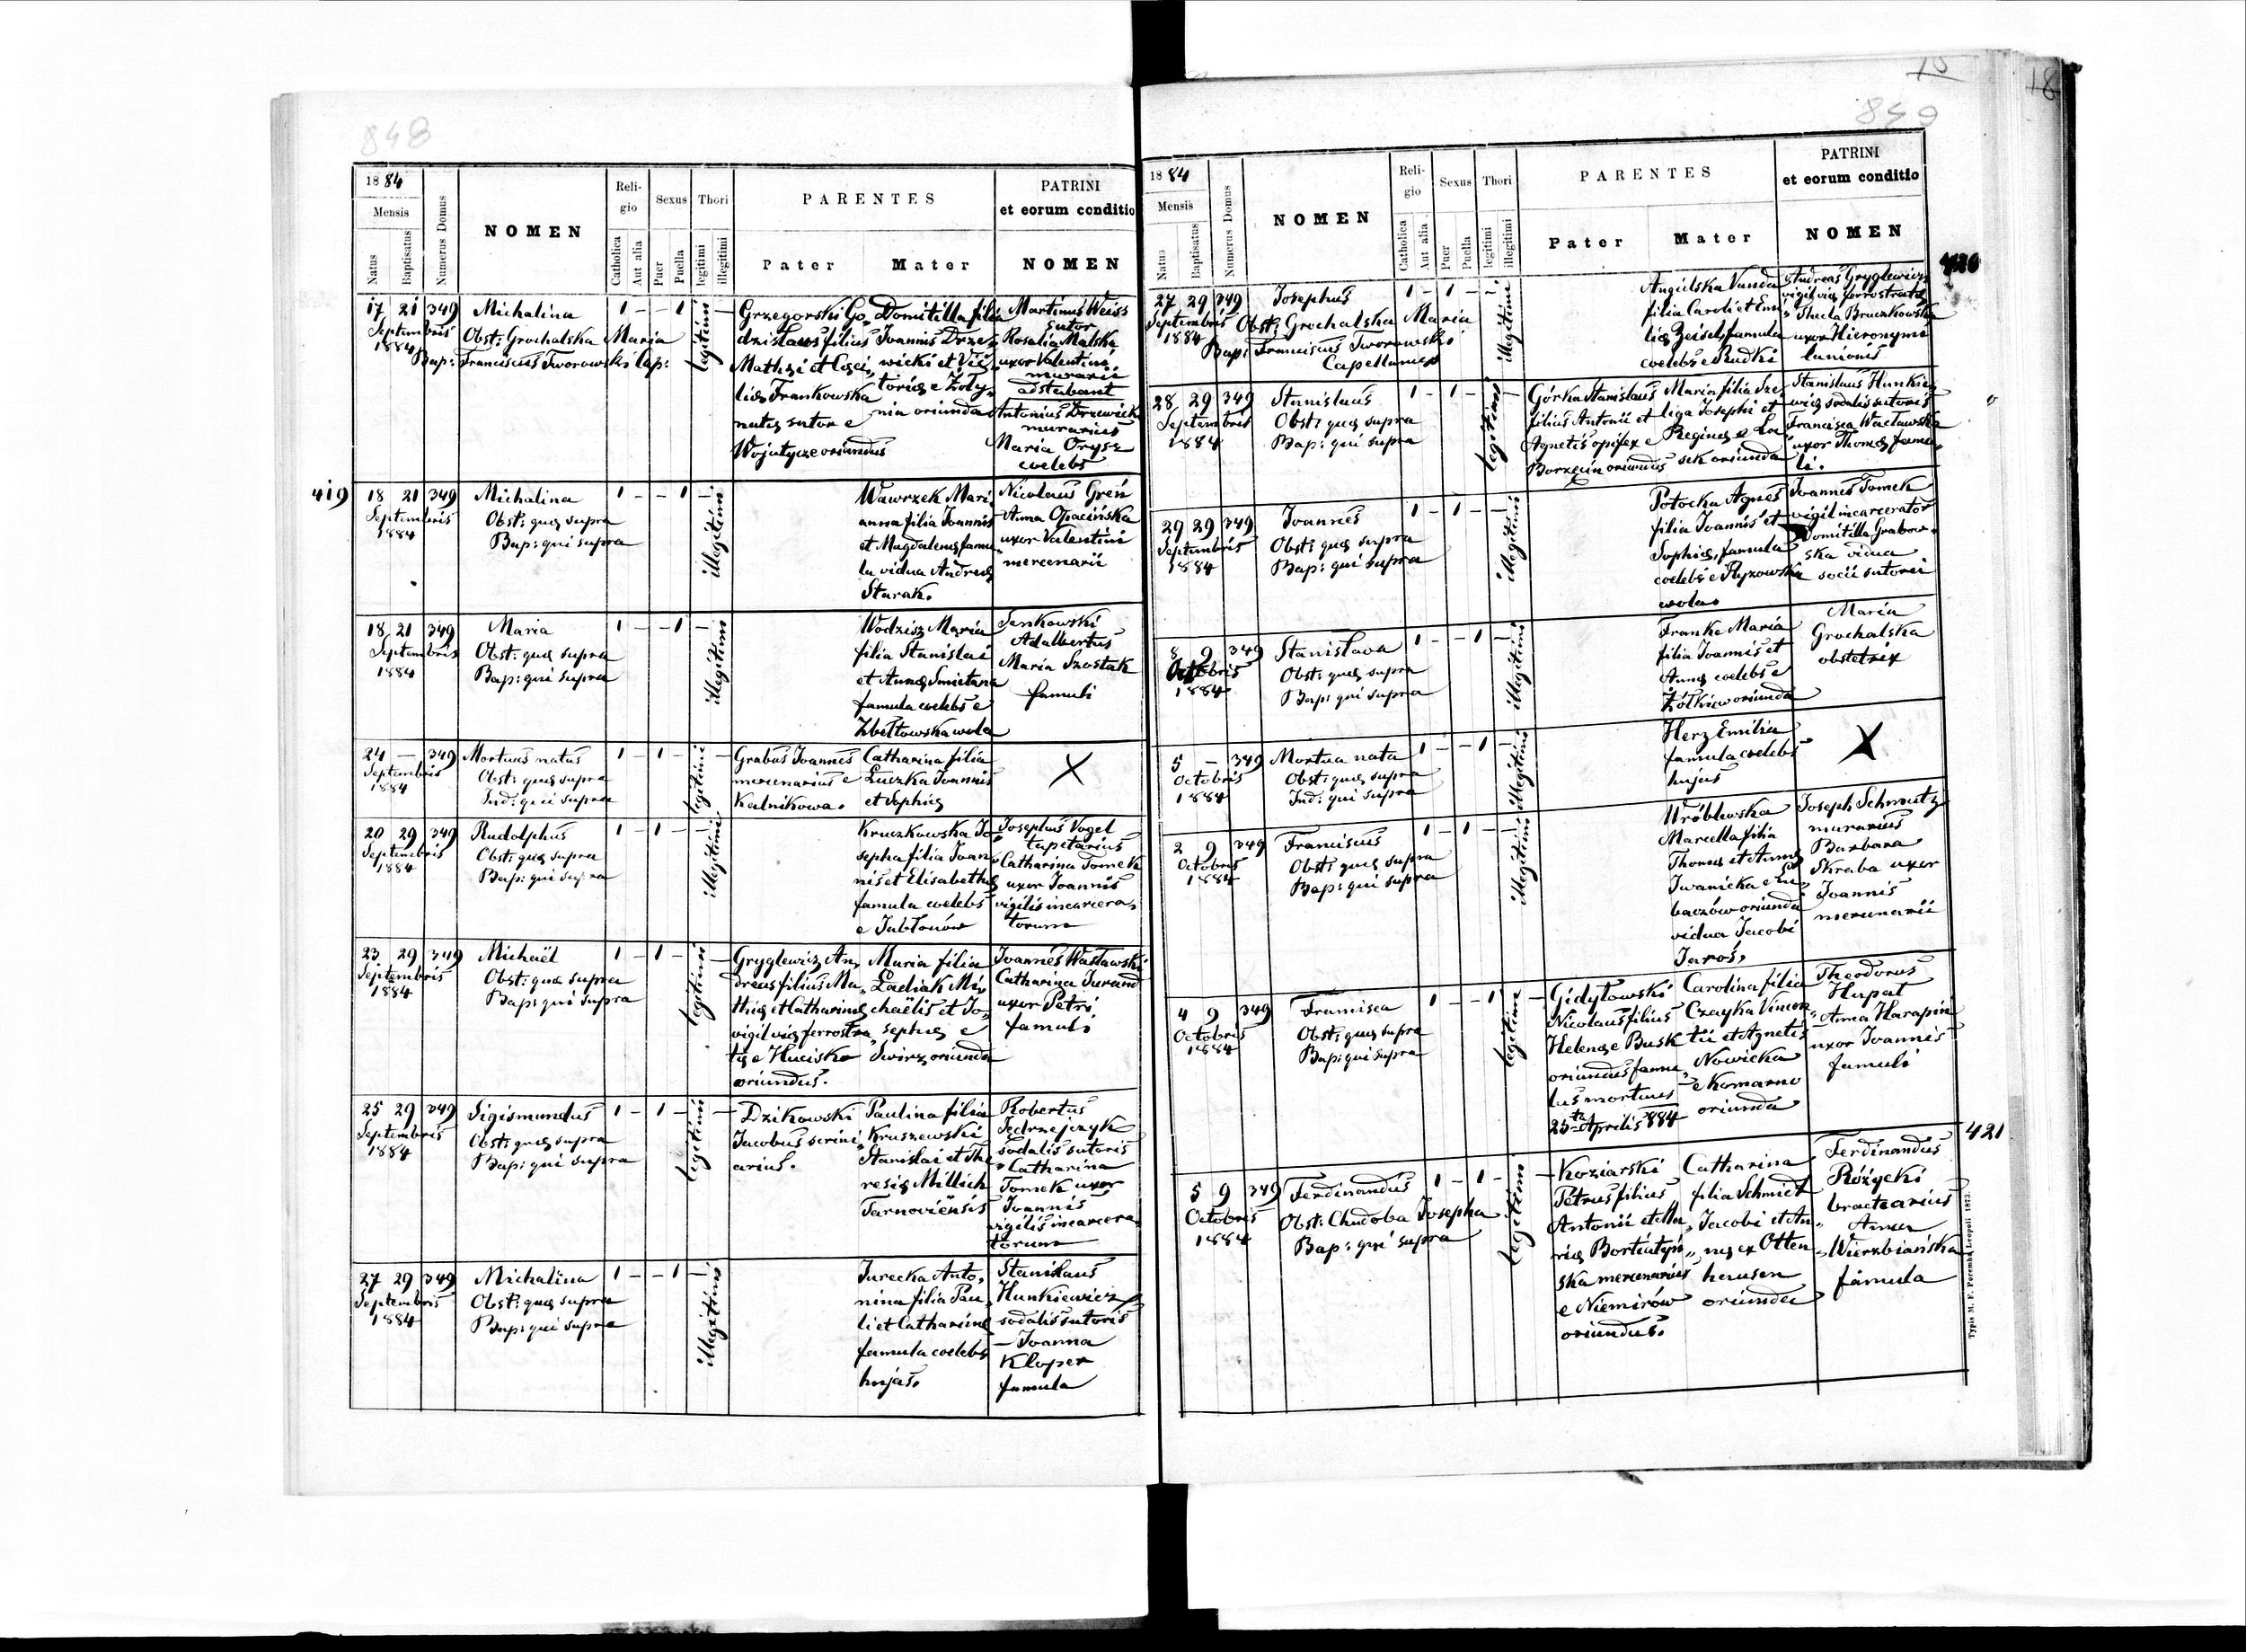 848
1884
Mensis
Natus
Baptisatus
Numerus Domus
NOMEN
Religio
Catholica
Aut alia
Sexus
Puer
Puella
Thori
legitimi
illegitimi
PARENTES
Pater
Mater
PATRINI
et eorum conditio
NOMEN
17 21 349 Michalina 1 – – 1 –
Septembris 1884
Obst: Grochalska Maria
Bap: Franciscus Tworowski Cap:
legitimi
Grzegorski Go„
dzislaus filius
Mathei et Ceci„
liae Frankowska
natus sutor e
Wojutycze oriundus
Domitilla filia
Joannis Drze„
wicki et Vic„
toriae e Żoły„
nia oriunda
Martinus Weiss
sutor
Rosalia Malska
uxor Valentini
murarii
adstabant
Antonius Drzewicki
murarius
Maria Orysz
coelebs
419
18 21 349 Michalina 1 – – 1 –
Septembris 1884
Obst: quae supra
Bap: qui supra
illegitimi
Wawrzek Mari„
anna filia Joannis
et Magdalenae famu„
la vidua Andreae
Starak.
Nicolaus Greń
Anna Opacińska
uxor Valentini
mercenarii
18 21 349 Maria 1 – – 1 –
Septembris 1884
Obst: quae supra
Bap: qui supra
illegitimi
Wodzisz Maria
filia Stanislai
et Annae Smietana
famula coelebs e
Zbeltowska wola
Jankowski
Adalbertus
Maria Szostak
famuli
24 – 349 Mortuus natus 1 – 1 – –
Septembris 1884
Obst: quae supra
Ind: qui supra
legitimi
Grabas Joannes
mercenarius e
Kalnikowa.
Catharina filia
Łuczka Joannis
et Sophiae
X
20 29 349 Rudolphus 1 – 1 – –
Septembris 1884
Obst: quae supra
Bap: qui supra
illegitimi
Kruczkowska Jo„
sepha filia Joan„
nis et Elisabethae
famula coelebs
e Jabłonów
Josephus Vogel
tapetarius
Catharina Tomek
uxor Joannis
vigilis incarcera„
torum
23 29 349 Michaël 1 – 1 – –
Septembris 1884
Obst: quae supra
Bap: qui supra
legitimi
Gryglewicz An„
dreas filius Ma„
thiae et Catharinae
vigil viae ferrostra„
tae e Hucisko
oriundus.
Maria filia
Ładiak Mi„
chaëlis et Jo„
sephae e
Swirz oriunda
Joannes Wasławski
Catharina Jurand
uxor Petri
famuli
25 29 349 Sigismundus 1 – 1 – –
Septembris 1884
Obst: quae supra
Bap: qui supra
legitimi
Dzikowski
Jacobus scrini„
arius.
Paulina filia
Kruszewski
Stanislai et The„
resiae Millich
Tarnoviënsis
Robertus
Jędrzejczyk
sodalis sutoris
Catharina
Tomek uxor
Joannis
vigilis incarcera„
torum
27 29 349 Michalina 1 – – 1 –
Septembris 1884
Obst: quae supra
Bap: qui supra
illegitimi
Jurecka Anto„
nina filia Pau„
li et Catharinae
famula coelebs
hujas.
Stanislaus
Hunkiewicz
sodalis sutoris
– Joanna
Kloper
famula
18
849
1884
Mensis
Natus
Baptisatus
Numerus Domus
NOMEN
Religio
Catholica
Aut alia
Sexus
Puer
Puella
Thori
legitimi
illegitimi
PARENTES
Pater
Mater
PATRINI
et eorum conditio
NOMEN
420
27 29 349 Josephus 1 – 1 – –
Septembris 1884
Obst: Grochalska Maria
Bap: Franciscus Tworowski
Capellanus
illegitimi
Angielska Vanda
filia Caroli et Emi„
liae Zeisel, famula
coelebs e Rudki
Andreas Gryglewicz
vigil viae ferrostratae
Thecla Bruczkowska
uxor Hieronymi
lanionis
28 29 349 Stanislaus 1 – 1 – –
Septembris 1884
Obst: quae supra
Bap: qui supra
legitimi
Górka Stanislaus
filius Antonii et
Agnetis opifex e
Borzęcin oriundus
Maria filia Sze„
liga Josephi et
Reginae e Ło„
sek oriunda
Stanislaus Hunkie„
wicz sodalis sutoris
Francisca Wacławska
uxor Thomae famu„
li.
29 29 349 Joannes 1 – 1 – –
Septembris 1884
Obst: quae supra
Bap: qui supra
illegitimi
Potocka Agnes
filia Joannis et
Sophiae, famula
coelebs e Ryzowska
wola.
Joannes Tomek
vigil incarcerator
Domitilla Grabow„
ska vidua
socii sutoris
8 9 349 Stanislava 1 – – 1 –
Octobris 1884
Obst: quae supra
Bap: qui supra
illegitimi
Franke Maria
filia Joannis et
Annae coelebs e
Żółkiew oriunda
Maria
Grochalska
obstetrix
5 – 349 Mortua nata 1 – – 1 –
Octobris 1884
Obst: quae supra
Ind: qui supra
illegitimi
Herz Emilia
famula coelebs
hujas
X
2 9 349 Franciscus 1 – 1 – –
Octobris 1884
Obst: quae supra
Bap: qui supra
illegitimi
Wróblewska
Marcella filia
Thomae et Annae
Iwanicka e Lu„
baczów oriunda
vidua Jacobi
Jaroś.
Joseph Schmutz
murarius
Barbara
Skraba uxor
Joannis
mercenarii
4 9 349 Francisca 1 – – 1 –
Octobris 1884
Obst: quae supra
Bap: qui supra
legitimi
Gidyłowski
Nicolaus filius
Helenae e Busk
oriundus famu„
lus mortuus
25ta Aprilis 884
Carolina filia
Czayka Vincen„
tii et Agnetis
Nowicka
e Komarno
oriunda
Theodorus
Hupat
Anna Harapin
uxor Joannis
famuli
421
5 9 349 Ferdinandus 1 – 1 – –
Octobris 1884
Obst: Chudoba Josepha
Bap: qui supra
legitimi
Koziarski
Petrus filius
Antonii et Ma„
riae Bortiatyń„
ska mercenarius
e Niemirów
oriundus.
Catharina
filia Schmidt
Jacobi et An„
nae ex Otten„
hausen
oriunda
Ferdinandus
Różycki
bractearius
Anna
Wierzbiańska
famula
Typis M. F. Poremba Leopoli 1873.